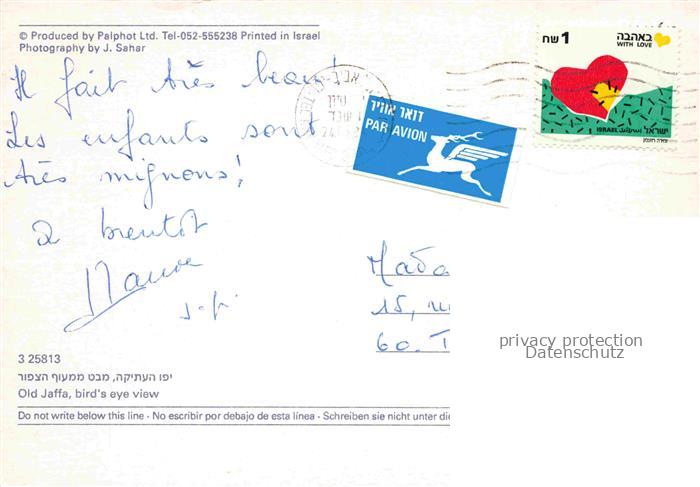 © Produced by Palphot Ltd. Tel-052-555238 Printed in Israel
Photography by J. Sahar
באהבה
WITH LOVE
1 שח
ישראל ISRAEL
דואר אוויר
PAR AVION
Il fait très beau!
Les enfants sont
très mignons!
à bientôt
Mada
15,
60. T
privacy protection
Datenschutz
3 25813
יפו העתיקה, מבט ממעוף הצפור
Old Jaffa, bird's eye view
Do not write below this line · No escribir por debajo de esta línea · Schreiben sie nicht unter di